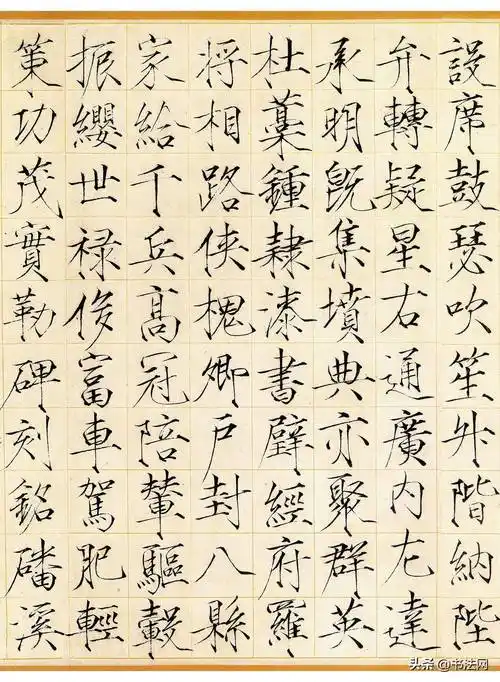 設席鼓瑟吹笙升階納陛
弁轉疑星右通廣内左達
承明既集墳典亦聚群英
杜藁鍾隸漆書壁經府羅
将相路侠槐卿戶封八縣
家給千兵髙冠陪輦驅轂
振纓世禄侈富車駕肥輕
策功茂實勒碑刻銘磻溪
头条 @书法网